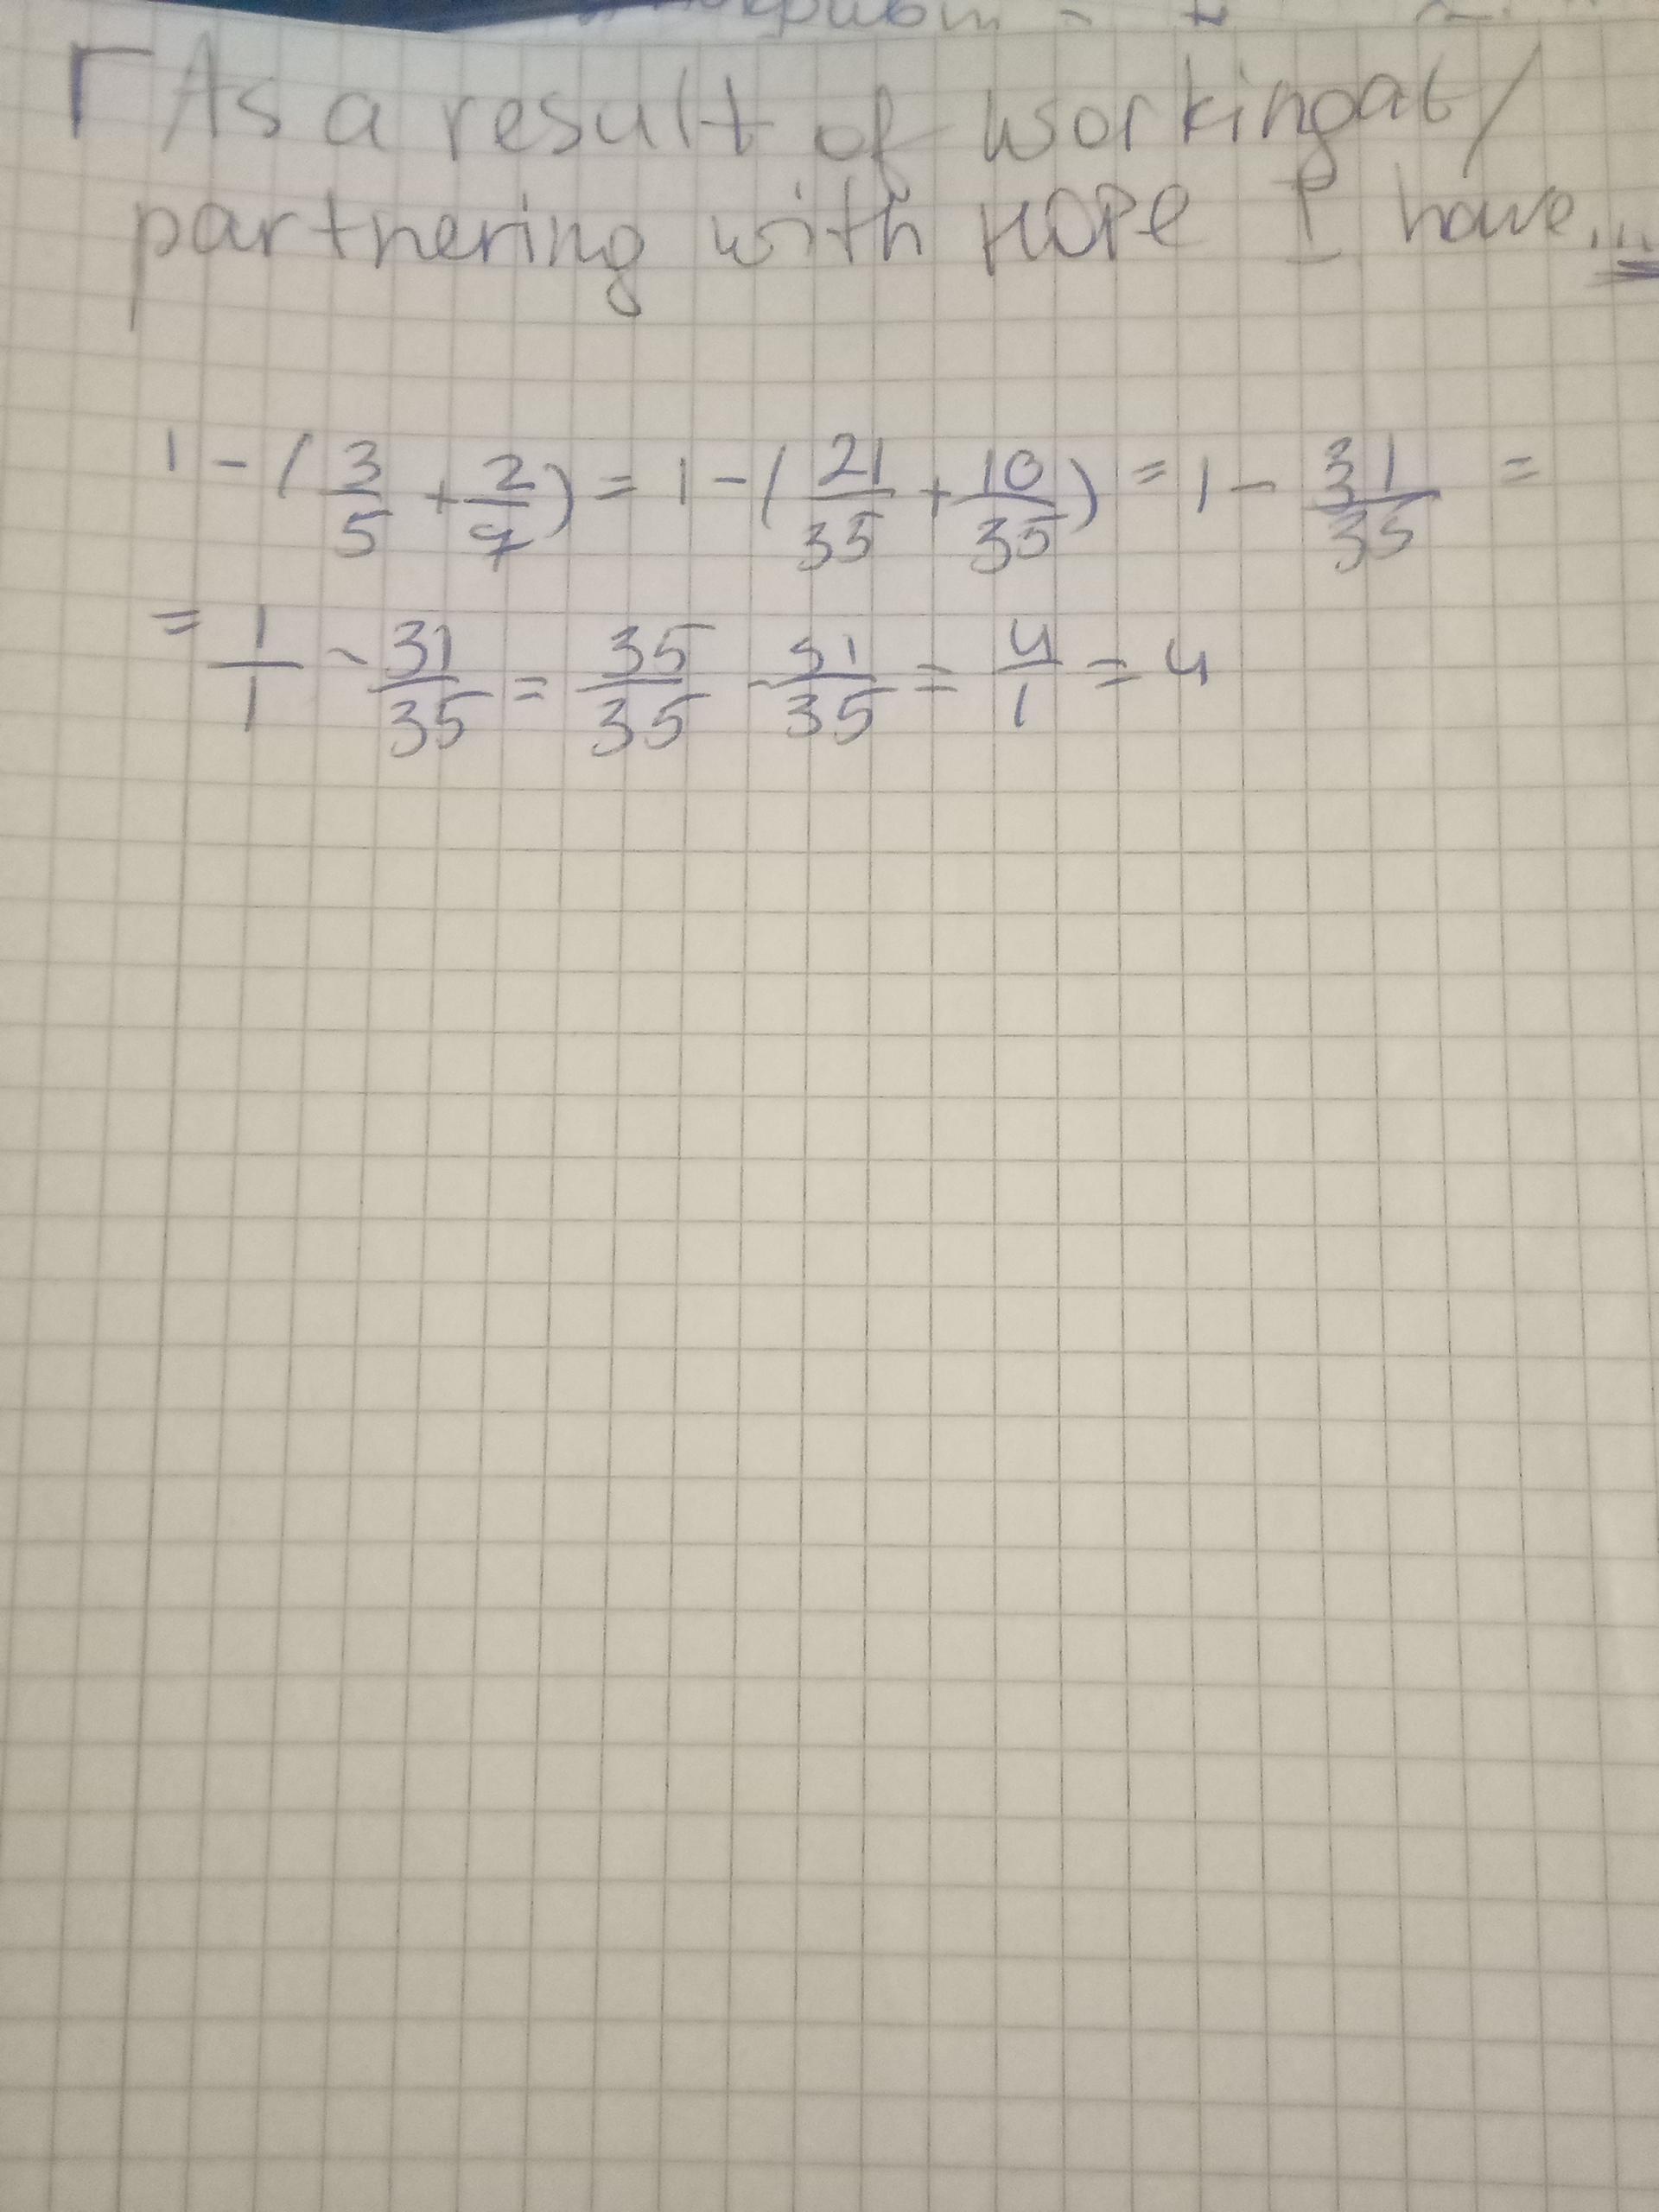 As a result of working at/
partnering with HOPE I have...
1 - ( 3/5 + 2/7 ) = 1 - ( 21/35 + 10/35 ) = 1 - 31/35 =
= 1/1 - 31/35 = 35/35 - 31/35 = 4/1 = 4